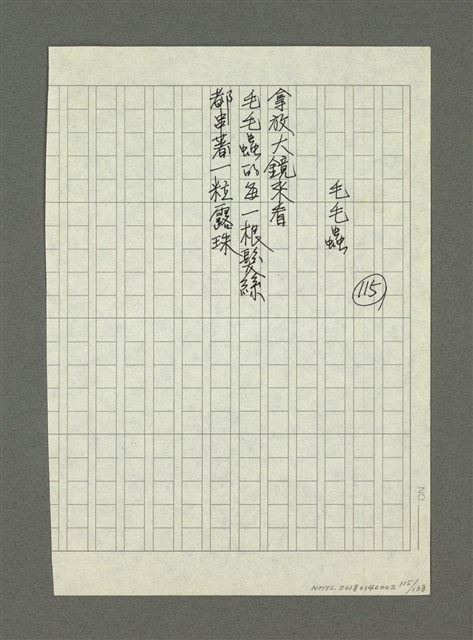 毛毛蟲
115
拿放大鏡來看
毛毛蟲的每一根髮絲
都串著一粒露珠
NO.
NMTL20180140002 115/138